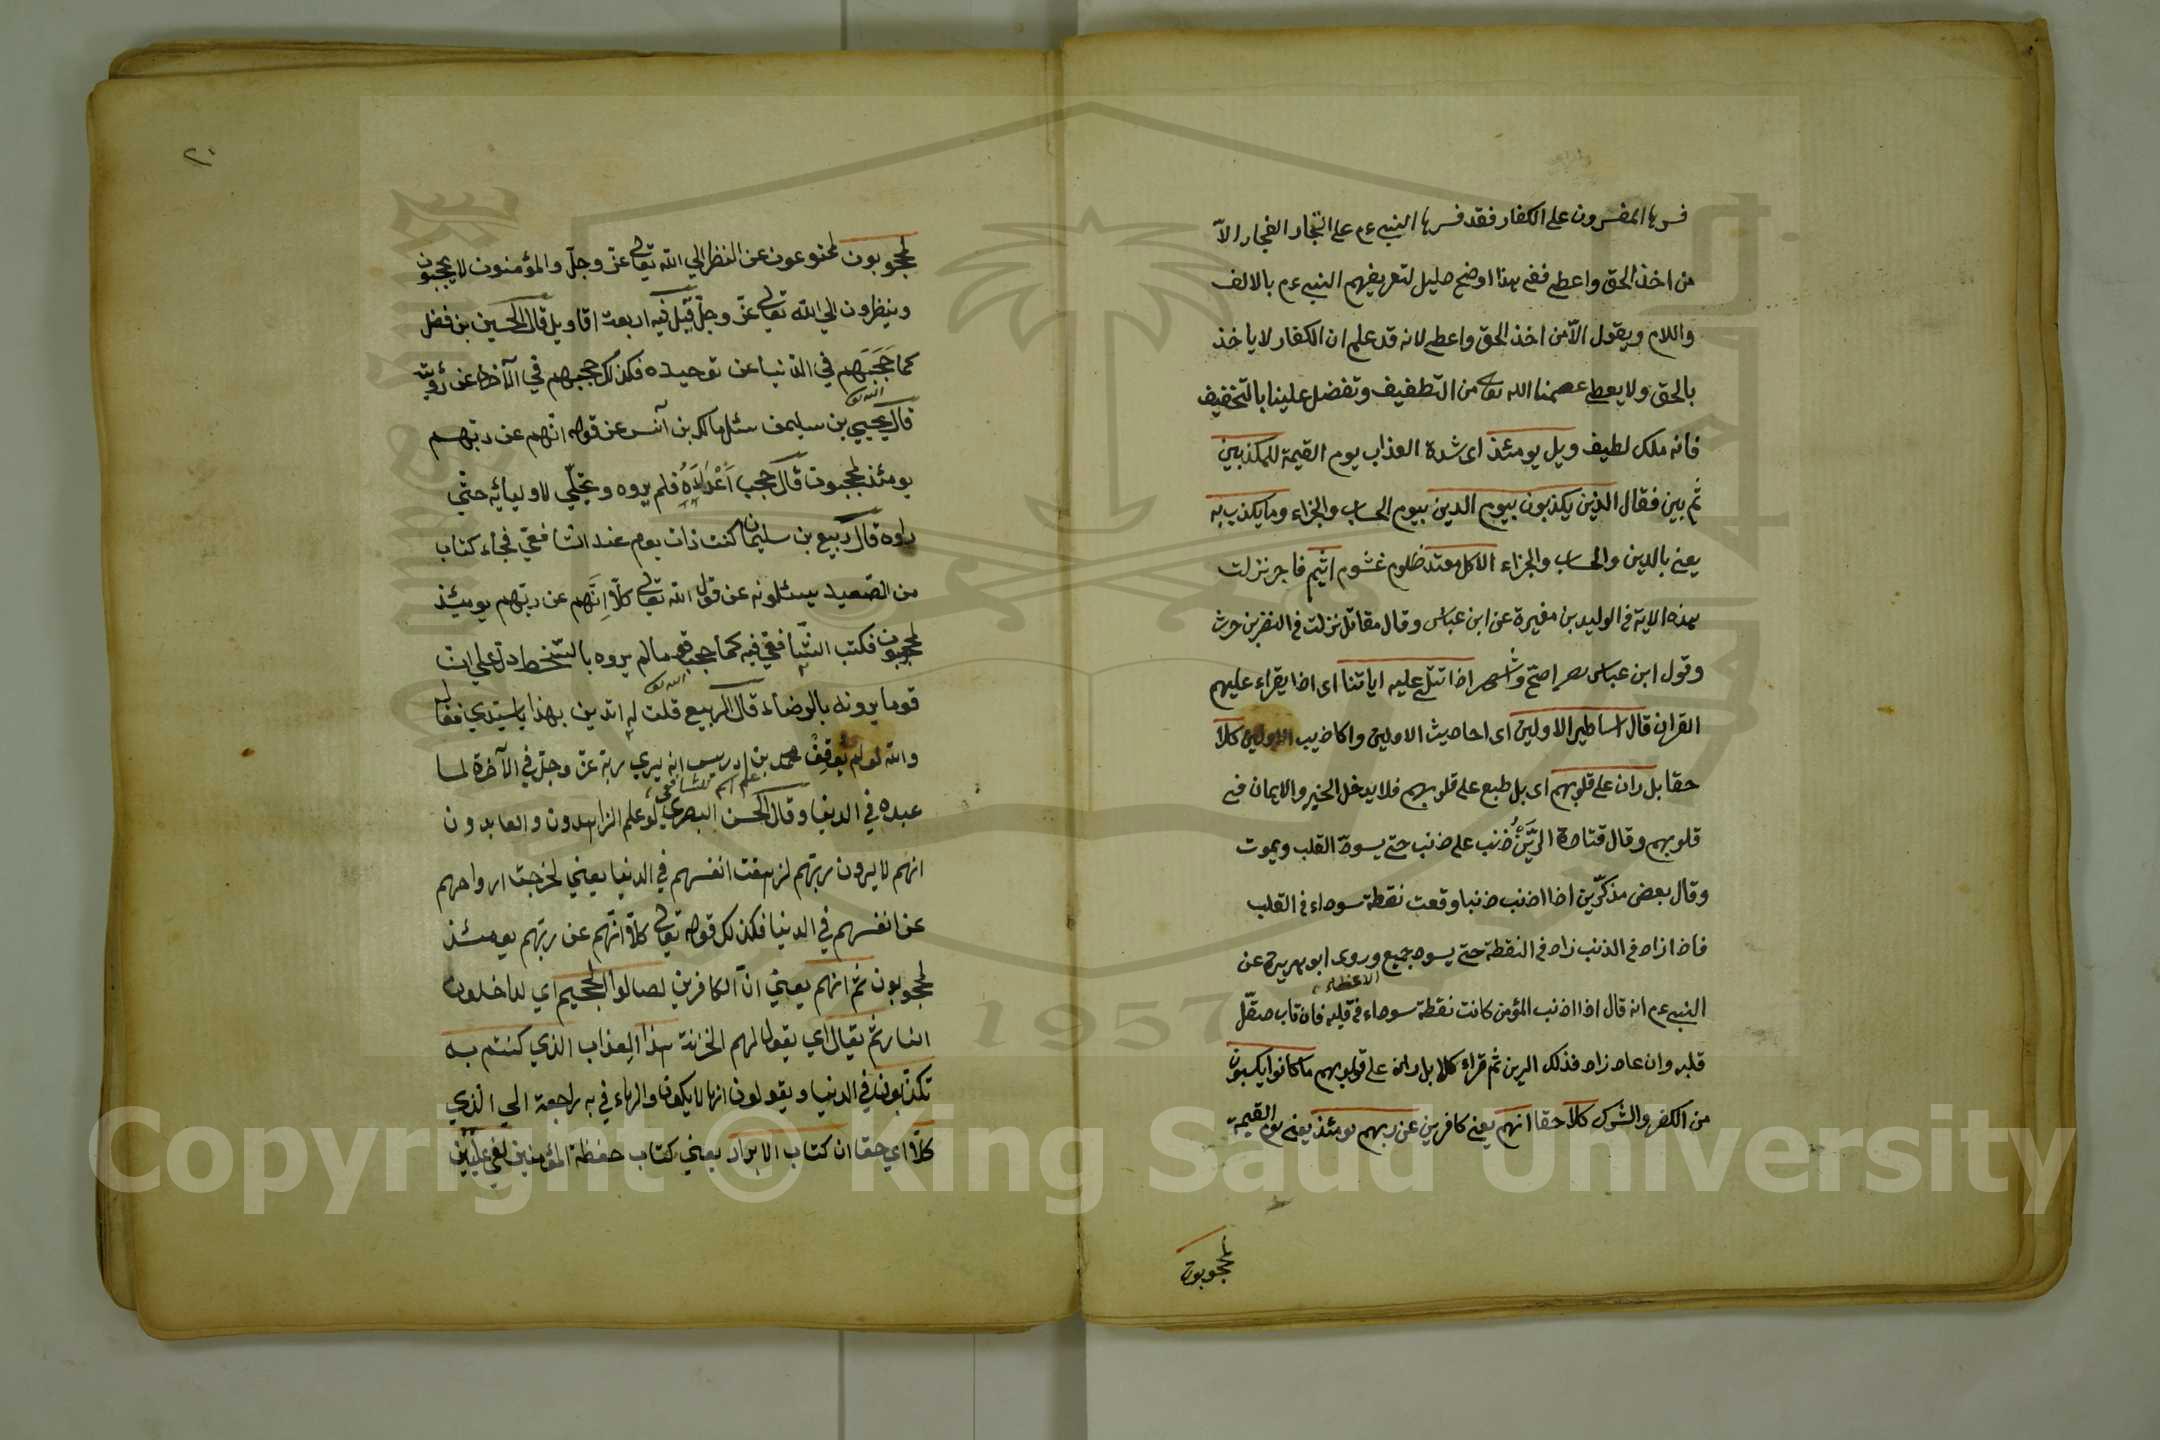 فسرها المفسرون على الكفار فقد فسرها النبي عم على التجار الفجار الاّ
من اخذ الحق واعطى ففى هذا اوضح دليل لتعريفهم النبي عم بالالف
واللام ويقول الاّ من اخذ الحق واعطى لانه قد علم ان الكفار لا ياخذ
بالحق ولا يعطى عصمنا الله تعا من التطفيف وتفضل علينا بالتخفيف
فانه ملك لطيف ويل يومئذ اى شدة العذاب يوم القيمة للمكذبين
ثم بين فقال الذين يكذبون بيوم الدين بيوم الحساب والجزاء وما يكذب به
يعنى بالدين والحساب والجزاء الا كل معتد ظلوم غشوم اثيم فاجر نزلت
هذه الاية فى الوليد بن مغيرة عن ابن عباس وقال مقاتل نزلت فى النضر بن حرث
وقول ابن عباس اصح واشهر اذا تتلى عليه اياتنا اى اذا يقراء عليهم
القران قال اساطير الاولين اى احاديث الاولين واكاذيب الاولين كلا
حقا بل ران على قلوبهم اى بل طبع على قلوبهم فلا يدخل الخير والايمان فى
قلوبهم وقال قتادة الرَّيْنُ ذنب على ذنب حتى يسودّ القلب ويموت
وقال بعض مذكّرين اذا اذنب ذنبا وقعت نقطة سوداء فى القلب
فاذا زاد فى الذنب زاد فى النقطة حتى يسود جميع وروى ابو هريرة عن
الاعضاء
النبي عم انه قال اذا اذنب المؤمن كانت نقطة سوداء فى قلبه فان تاب صقّل
قلبه وان عاد زاد فذلك الرين ثم قراء كلا بل ران على قلوبهم ما كانوا يكسبون
من الكفر والشرك كلا حقا انهم يعنى كافرين عن ربهم يومئذ يعنى يوم القيمة
لمحجوبون
٢٠
لمحجوبون لممنوعون عن النظر الي الله تعالى عزّ وجلّ والمؤمنون لا يحجبون
وينظرون الي الله تعالى عزّ وجلّ قيل فيه اربعة اقاويل قال الحسين بن فضل
كما حَجَبَهم في الدنيا عن توحيده فكذلك حجبهم في الآخرة عن رؤيته
الله تعا
قال يحيي بن سليمن سئل مالك بن آنس عن قوله انهم عن ربهم
يومئذ لمحجبون قال حجب اَعْدَاَءَهُ فلم يروه وتجلّي لاوليائه حتّي
راوه قال ربيع بن سليمان كنت ذات يوم عند الشافعي فجاء كتاب
من الصعيد يسئلونه عن قول الله تعالى كلاّ اِنَّهم عن ربّهم يومئذ
لمحجوبون فكتب الشافعي فيه كما حجب قوما لم يروه بالسّخط دلّ علي ان
الله تعا
قوما يرونه بالرضاء قال الربيع قلت له اتدين بهذا يا سيّدي فقال
والله لو لم يُوقِن محمد بن ادريس انه يري ربّه عزّ وجلّ في الآخرة لما
علم اسم الشافعى
عبده في الدنيا وقال الحسن البصري لو علم الزاهدون والعابدون
انهم لا يرون ربّهم لزهقت انفسهم في الدنيا يعني لخرجت ارواحهم
عن انفسهم في الدنيا فكذلك قوله تعالى كلاّ انّهم عن ربّهم يومئذ
لمحجوبون ثمّ انهم يعني انّ الكافرين لصالوا الجحيم اي لداخلون
النار ثمّ يقال اي يقول لهم الخزنة هذا العذاب الذي كنتم به
تكذّبون في الدنيا ويقولون انها لا يكون والهاء في به راجعة الي الذي
كلاّ اي حقا ان كتاب الابرار يعني كتاب حفظة المؤمنين لفي عليّين
Copyright © King Saud University
1957